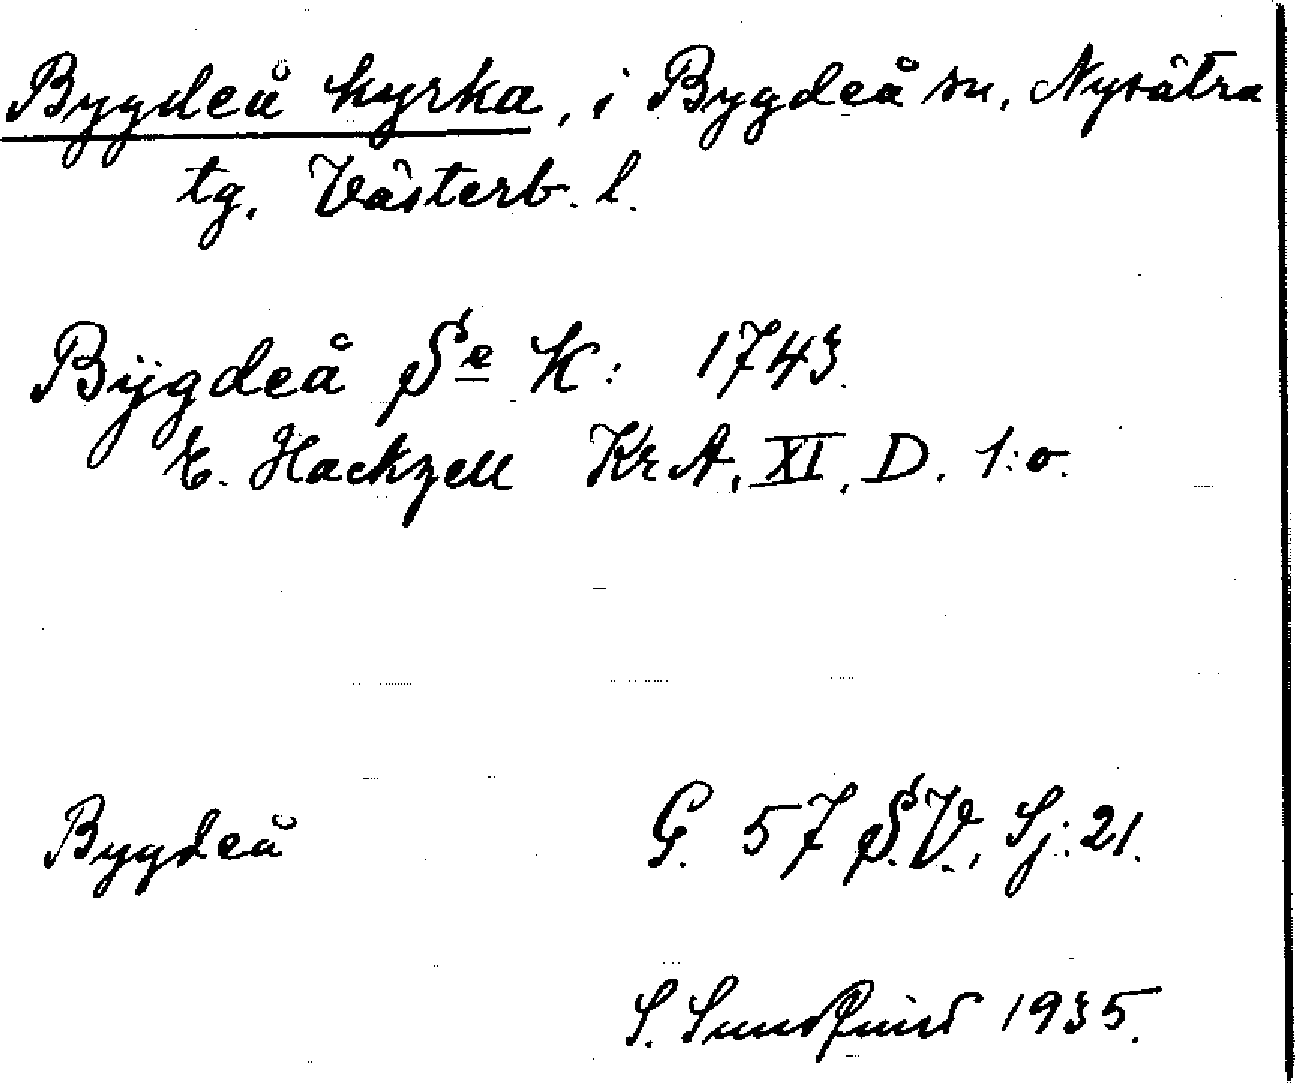 Bygdeå kyrka, i Bygdeå sn, Nysätra
tg, Västerb. l.
Bÿgdeå Se K: 1743.
E. Hackzell KrA, XI, D. 1:o.
Bygdeå G. 57 S.V., Sj: 21.
S. Sundquist 1935.